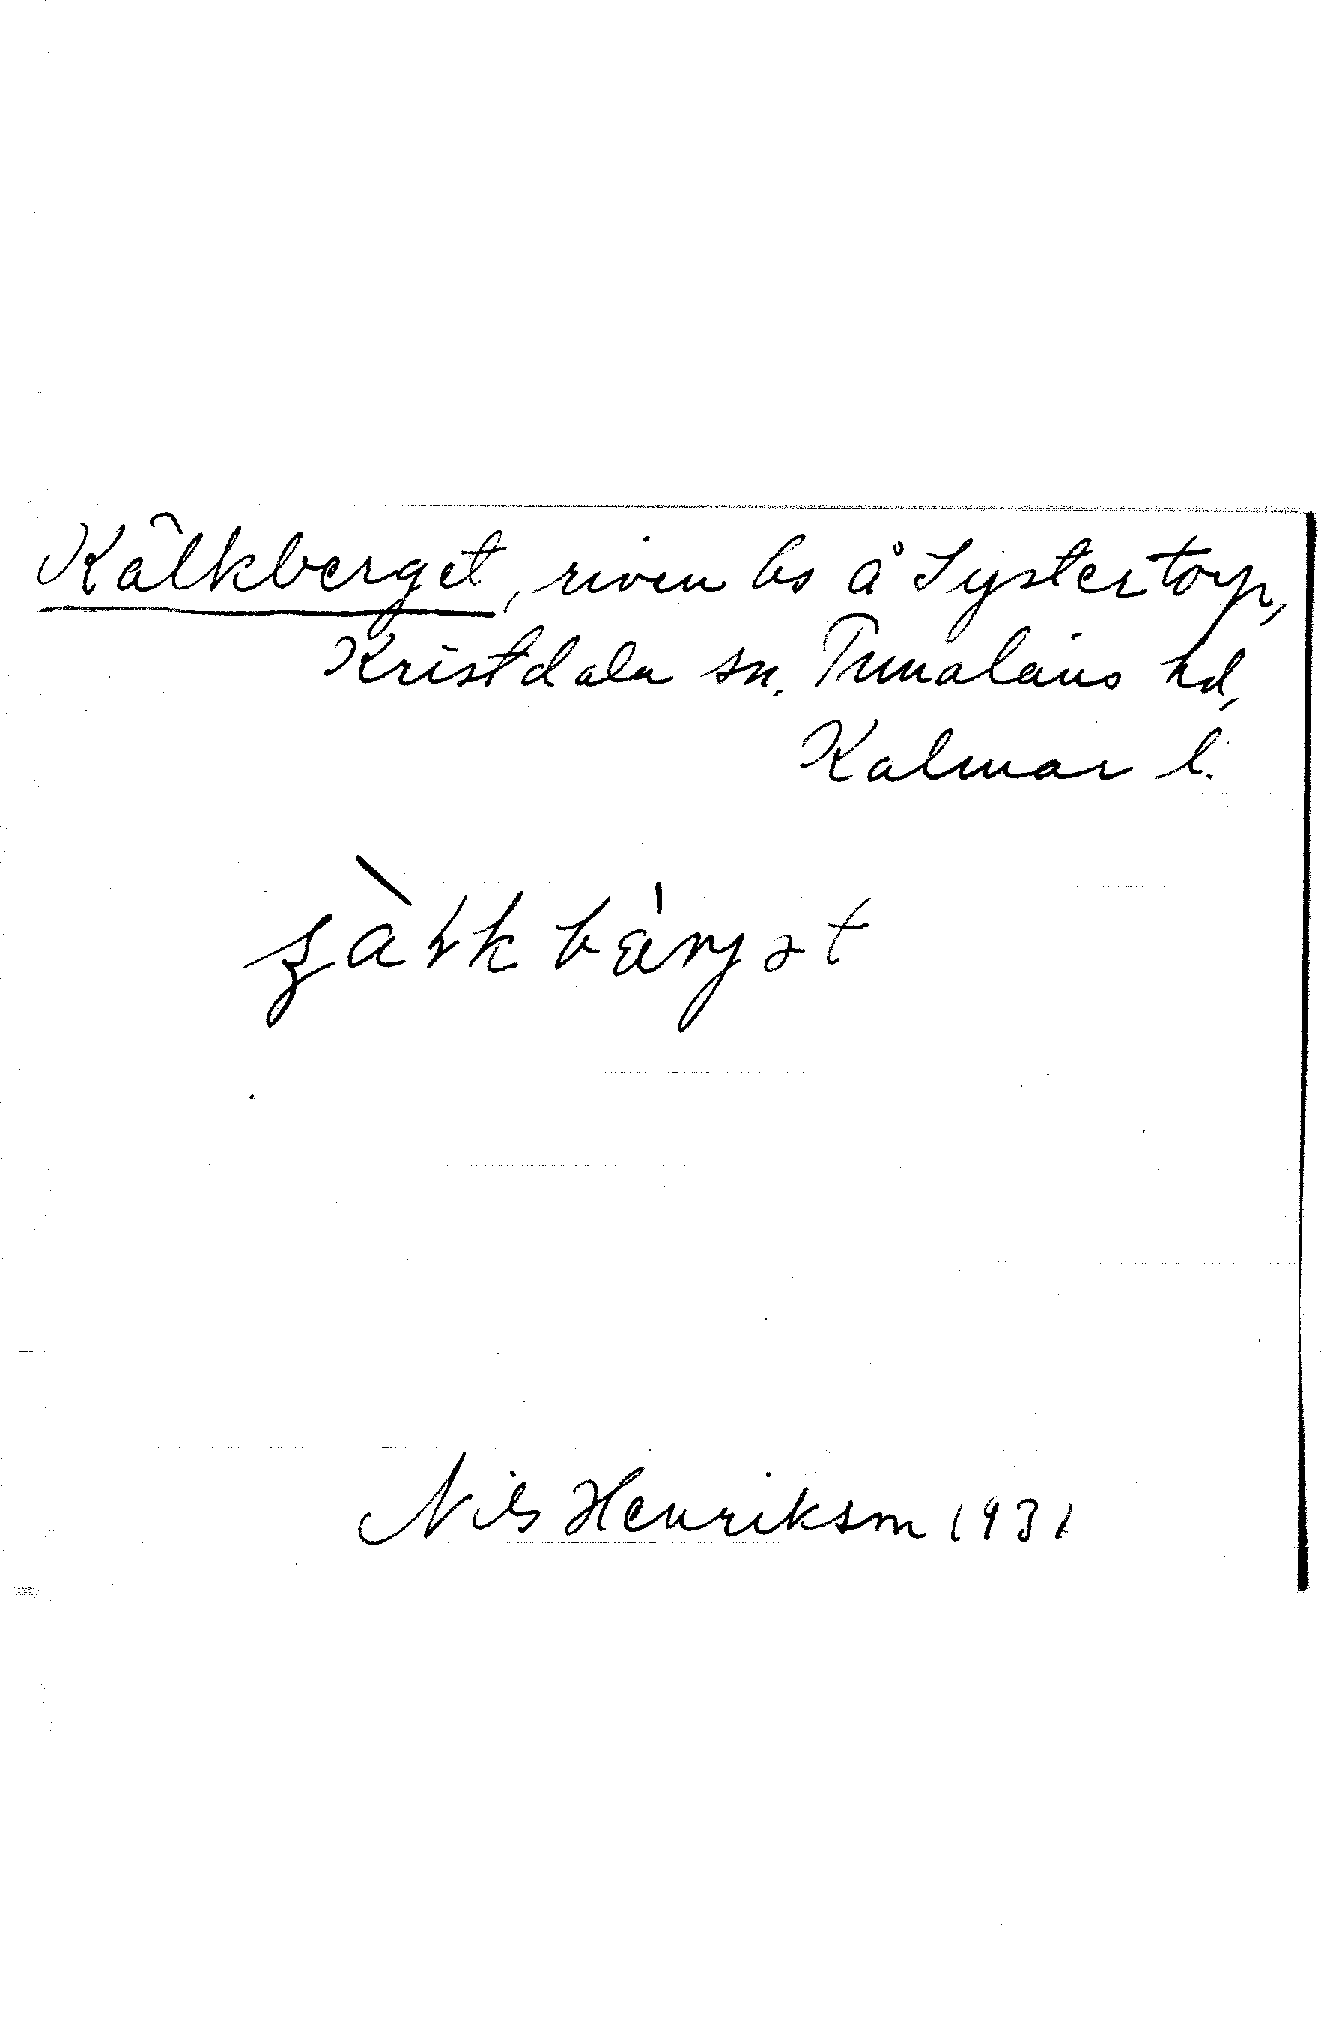 Kålkberget, riven bs å Systertorp,
Kristdala sn, Tunaläns hd,
Kalmar l.
Nils Henriksson 1931